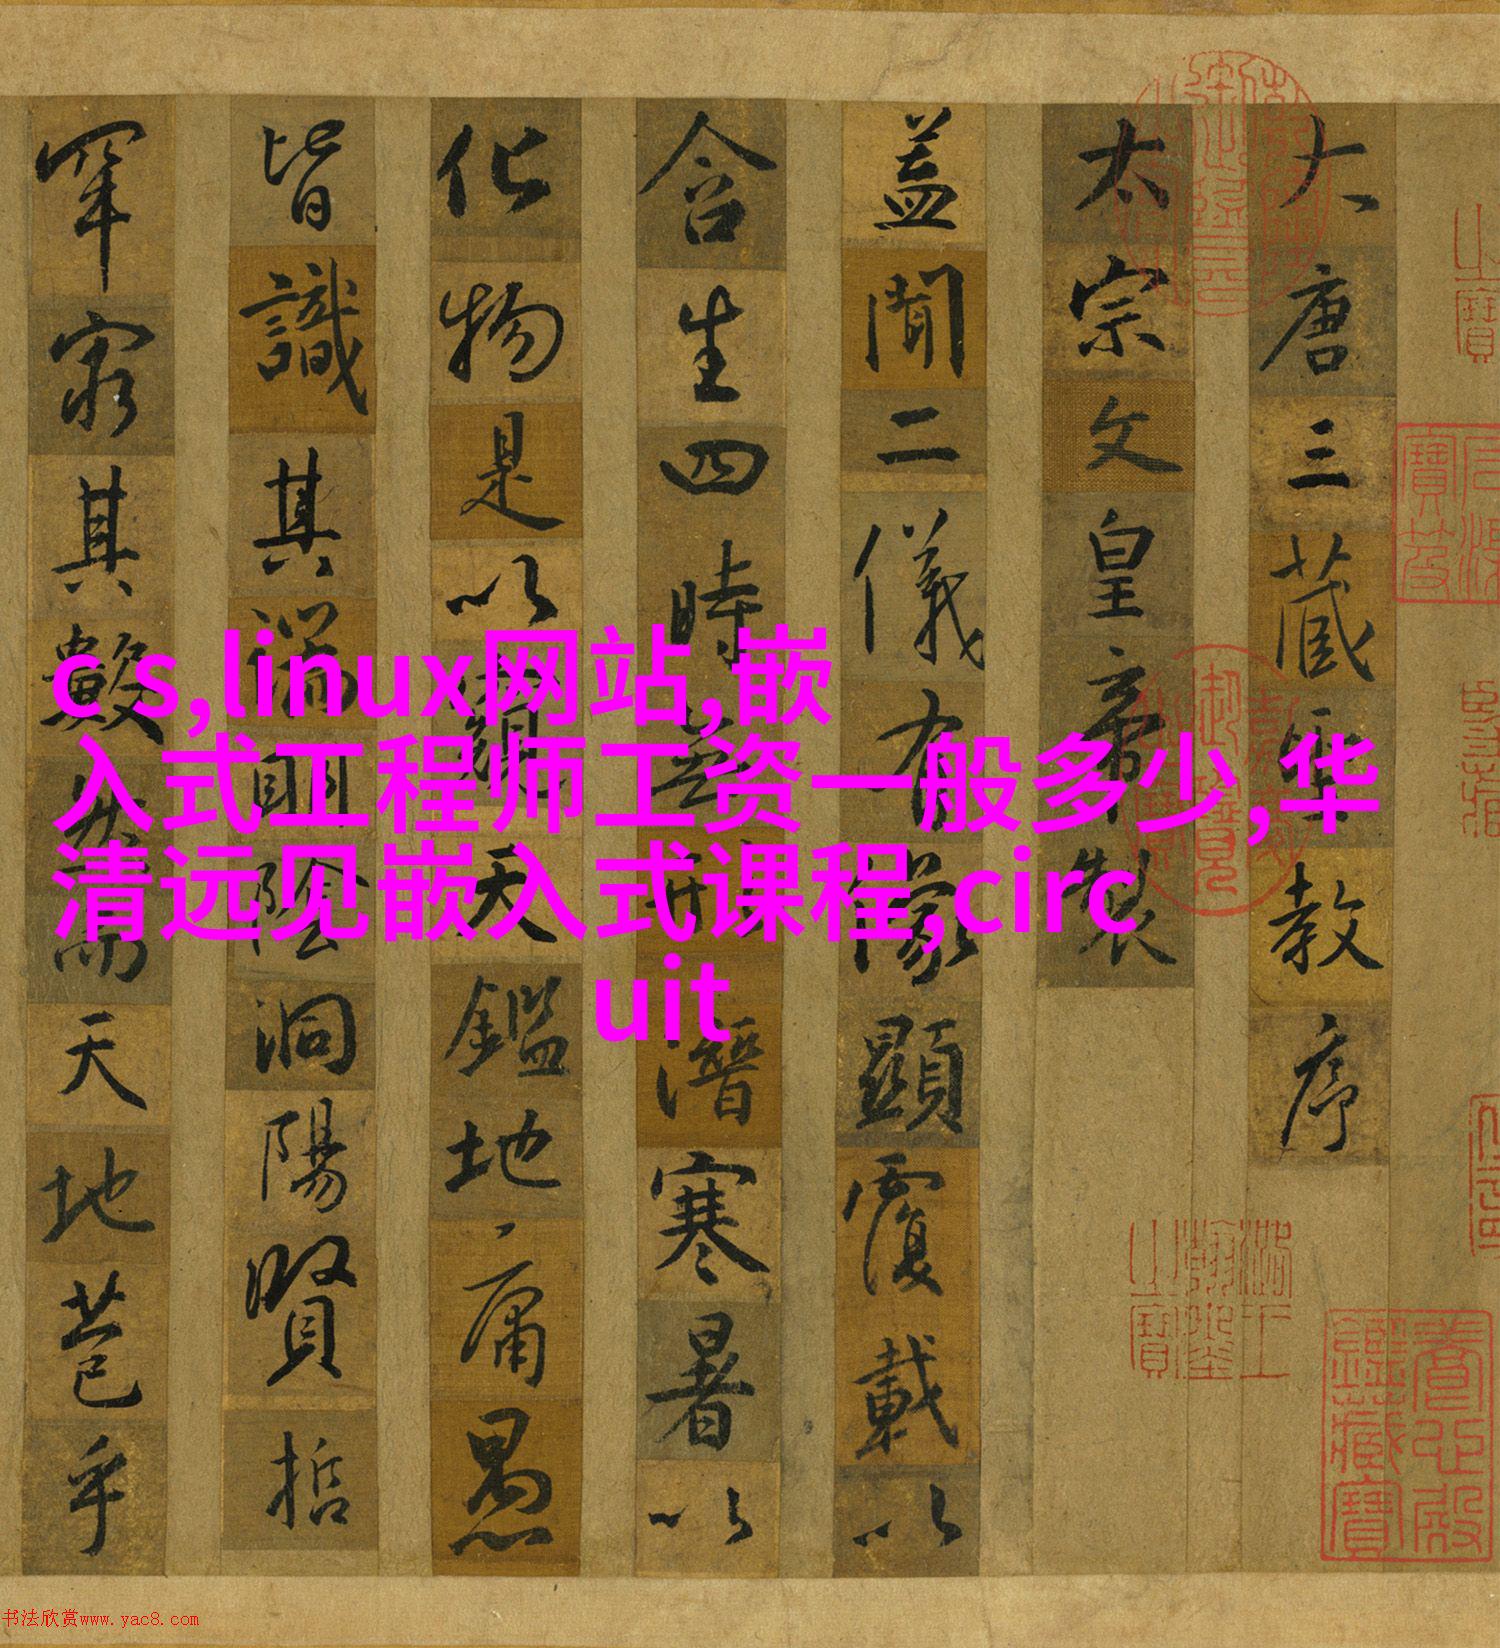 大唐三藏聖教序
太宗文皇帝製
蓋聞二儀有像顯覆載以
含生四時無形潛寒暑以
化物是以窺天鑑地庸愚
皆識其端明陰洞陽賢哲
罕窮其數然而天地苞乎
cs,linux网站,嵌
入式工程师工资一般多少,华
清远见嵌入式课程,circ
uit
书法欣赏www.yac8.com